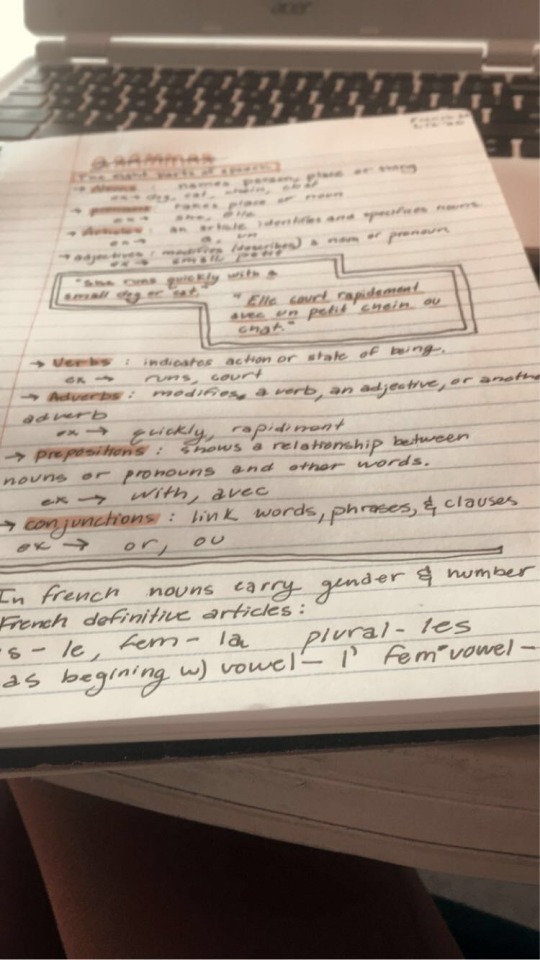 acer
GRAMMAR
The eight parts of speech
→ Nouns : names person, place or thing
ex → dog, cat, chein, chat
→ pronouns : takes place of noun
ex → she, elle
→ Articles : an article identifies and specifies nouns.
ex → a, un
→ adjectives : modifies (describes) a noun or pronoun
ex → small petit
"She runs quickly with a
small dog or cat."
"Elle court rapidement
avec un petit chein ou
chat."
→ Verbs : indicates action or state of being.
ex → runs, court
→ Adverbs : modifies a verb, an adjective, or anothe
adverb
ex → quickly, rapidiment
→ prepositions : shows a relationship between
nouns or pronouns and other words.
ex → with, avec
→ conjunctions : link words, phrases, & clauses
ex → or, ou
In french nouns carry gender & number
French definitive articles :
s - le, fem - la plural - les
as begining w) vowel - l' fem vowel -